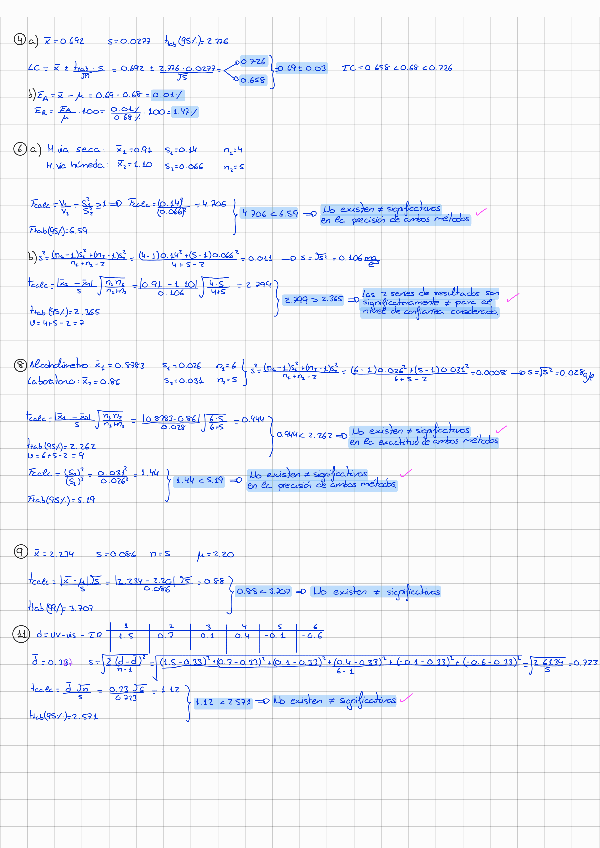 ④ a) x̄ = 0.692 s = 0.0277 t_tab (95%) = 2.776
LC = x̄ ± t_tab · s / √n = 0.692 ± 2.776 · 0.0277 / √5 = 0.726 0.658 0.69 ± 0.03 IC = 0.658 < 0.68 < 0.726
b) E_A = x̄ - μ = 0.69 - 0.68 = 0.01%
E_R = E_A / μ · 100 = 0.01% / 0.68% · 100 = 1.47%
⑥ a) H. vía seca: x̄₁ = 0.91 s₁ = 0.14 n₁ = 4
H. vía húmeda: x̄₂ = 1.10 s₂ = 0.066 n₂ = 5
F_calc = V₁/V₂ = S₁²/S₂² ≥ 1 ⇒ F_calc = (0.14)² / (0.066)² = 4.706
4.706 < 6.59 ⇒ No existen ≠ significativas
en la precisión de ambos métodos ✓
F_tab (95%) = 6.59
b) s² = (n₁-1)s₁² + (n₂-1)s₂² / n₁+n₂-2 = (4-1)0.14² + (5-1)0.066² / 4+5-2 = 0.011 → s = √s² = 0.106
t_calc = |x̄₁ - x̄₂| / s √n₁n₂ / n₁+n₂ = |0.91 - 1.10| / 0.106 √4·5 / 4+5 = 2.799
2.799 > 2.365 ⇒ Las 2 series de resultados son
significativamente ≠ para el
nivel de confianza considerado ✓
t_tab (95%) = 2.365
υ = 4+5-2 = 7
⑧ Alcoholímetro: x̄₁ = 0.8783 s₁ = 0.026 n₁ = 6 s² = (n₁-1)s₁² + (n₂-1)s₂² / n₁+n₂-2 = (6-1)0.026² + (5-1)0.031² / 6+5-2 = 0.0008 → s = √s² = 0.028
Laboratorio: x̄₂ = 0.86 s₂ = 0.031 n₂ = 5
t_calc = |x̄₁ - x̄₂| / s √n₁n₂ / n₁+n₂ = |0.8783 - 0.86| / 0.028 √6·5 / 6+5 = 0.944
0.944 < 2.262 ⇒ No existen ≠ significativas
en la exactitud de ambos métodos ✓
t_tab (95%) = 2.262
υ = 6+5-2 = 9
F_calc = (S₂)² / (S₁)² = 0.031² / 0.026² = 1.44
1.44 < 5.19 ⇒ No existen ≠ significativas
en la precisión de ambos métodos ✓
F_tab (95%) = 5.19
⑨ x̄ = 2.234 s = 0.086 n = 5 μ = 2.20
t_calc = |x̄ - μ| √5 / s = |2.234 - 2.20| √5 / 0.086 = 0.88
0.88 < 3.707 ⇒ No existen ≠ significativas
t_tab (99%) = 3.707
⑪ d = UV-vis - IR 1 2 3 4 5 6
1.5 0.7 0.1 0.4 -0.1 -0.6
d̄ = 0.33 s = √Σ(d-d̄)² / n-1 = √(1.5-0.33)² + (0.7-0.33)² + (0.1-0.33)² + (0.4-0.33)² + (-0.1-0.33)² + (-0.6-0.33)² / 6-1 = √2.6134 / 5 = 0.723
t_calc = d̄ √n / s = 0.33 √6 / 0.723 = 1.12
1.12 < 2.571 ⇒ No existen ≠ significativas ✓
t_tab (95%) = 2.571